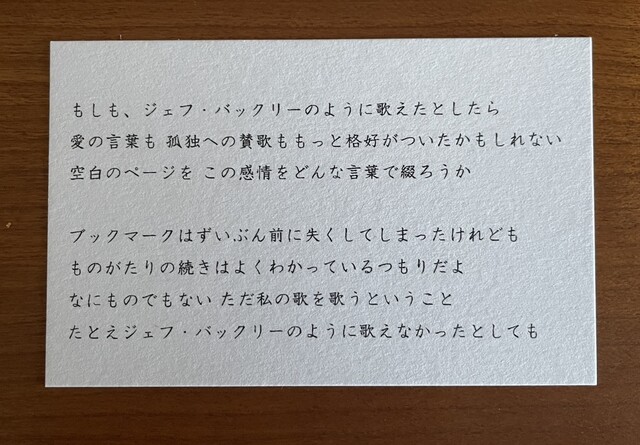 もしも、ジェフ・バックリーのように歌えたとしたら
愛の言葉も 孤独への賛歌ももっと格好がついたかもしれない
空白のページを この感情をどんな言葉で綴ろうか
ブックマークはずいぶん前に失くしてしまったけれども
ものがたりの続きはよくわかっているつもりだよ
なにものでもない ただ私の歌を歌うということ
たとえジェフ・バックリーのように歌えなかったとしても